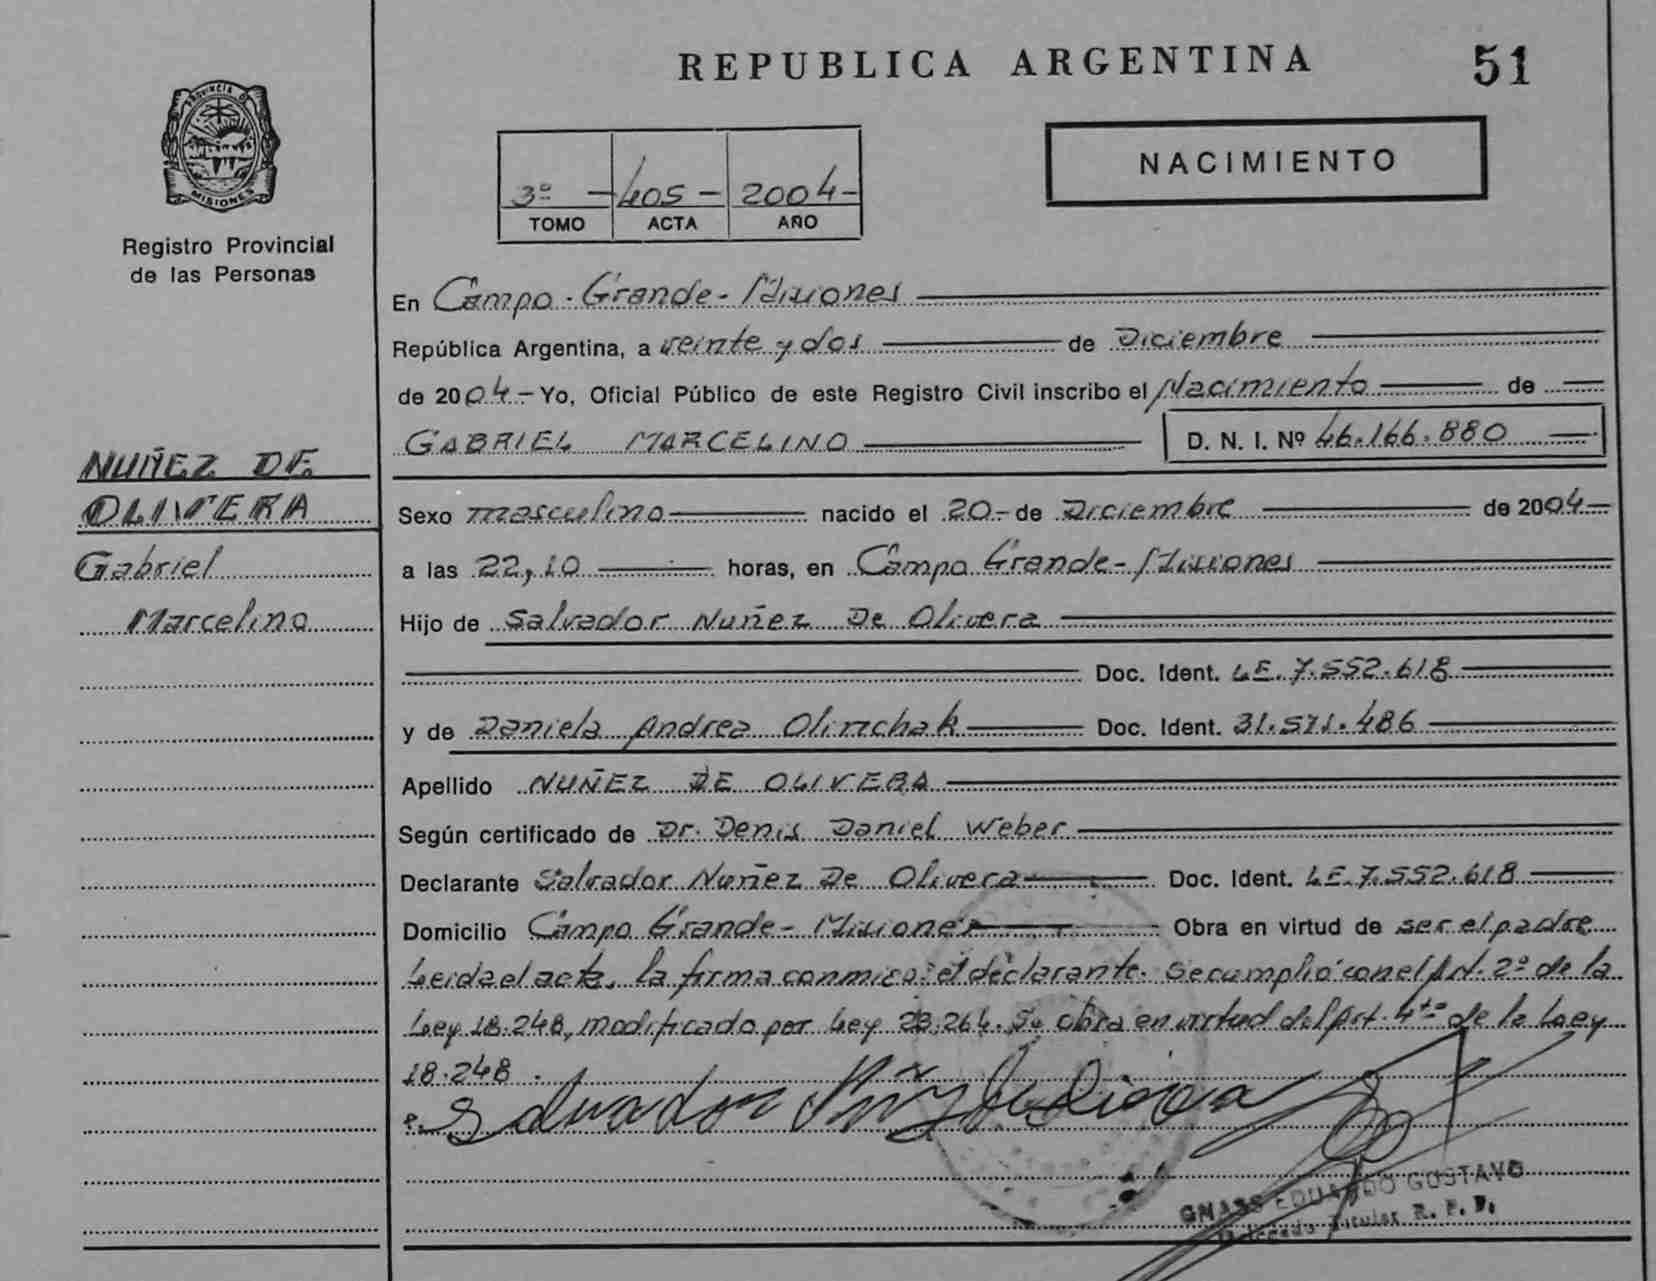 REPUBLICA ARGENTINA 51
PROVINCIA DE
MISIONES
Registro Provincial
de las Personas
3º - 405 - 2004-
TOMO ACTA AÑO
NACIMIENTO
NUÑEZ DE
OLIVERA
Gabriel
Marcelino
En Campo Grande - Misiones
República Argentina, a veinte y dos de Diciembre
de 2004 - Yo, Oficial Público de este Registro Civil inscribo el Nacimiento de
GABRIEL MARCELINO D. N. I. Nº 46.166.880
Sexo masculino nacido el 20 - de Diciembre de 2004-
a las 22,10 horas, en Campo Grande - Misiones
Hijo de Salvador Nuñez De Olivera
Doc. Ident. LE. 7.552.618
y de Daniela Andrea Olinchak Doc. Ident. 31.571.486
Apellido NUÑEZ DE OLIVERA
Según certificado de Dr. Denis Daniel Weber
Declarante Salvador Nuñez De Olivera Doc. Ident. LE. 7.552.618
Domicilio Campo Grande - Misiones Obra en virtud de ser el padre
Leida el acta, la firma conmigo: el declarante. Se cumplió con el Art. 2º de la
Ley 18.248, modificado por Ley 23.264. Se obra en virtud del Art. 4to de la Ley
18.248.
GNASS EDUARDO GUSTAVO
Delegado Titular R. P. P.